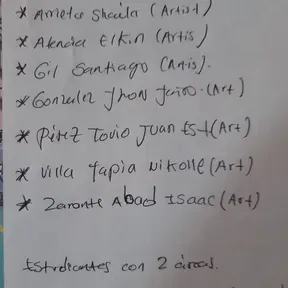 * Ameta Shaila (Artist)
* Atencia Elkin (Artis)
* Gil Santiago (Artis).
* Gonzalez Jhon Jairo. (Art)
* Pérez Tovio Juan Est (Art)
* Villa Tapia Nikolle (Art)
* Zarante Abad Isaac (Art)
Estudiantes con 2 áreas.